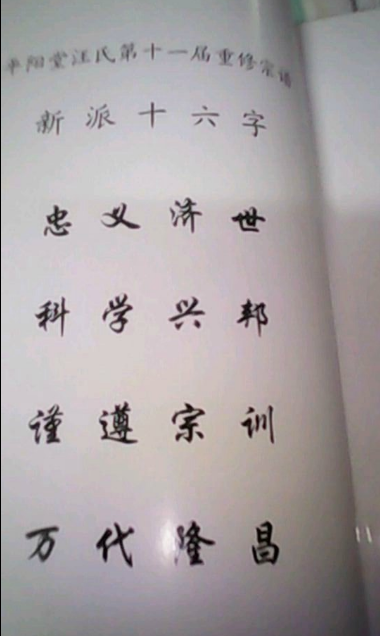 平阳堂汪氏第十一届重修宗谱
新派十六字
忠义济世
科学兴邦
谨遵宗训
万代隆昌